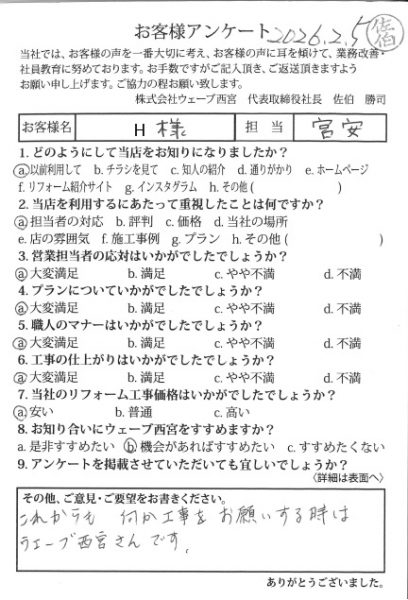 お客様アンケート 2026.2.5 佐伯
当社では、お客様の声を一番大切に考え、お客様の声に耳を傾けて、業務改善・
社員教育に努めております。お手数ですがご記入頂き、ご返送頂きますよう
お願い申し上げます。ご協力の程お願い致します。
株式会社ウェーブ西宮 代表取締役社長 佐伯 勝司
お客様名 H 様 担当 宮安
1. どのようにして当店をお知りになりましたか?
a.以前利用して b. チラシを見て c. 知人の紹介 d. 通りがかり e. ホームページ
f. リフォーム紹介サイト g. インスタグラム h. その他 ( )
2. 当店を利用するにあたって重視したことは何ですか?
a.担当者の対応 b. 評判 c. 価格 d. 当社の場所
e. 店の雰囲気 f. 施工事例 g. プラン h. その他 ( )
3. 営業担当者の応対はいかがでしたでしょうか?
a.大変満足 b. 満足 c. やや不満 d. 不満
4. プランについていかがでしたでしょうか?
a.大変満足 b. 満足 c. やや不満 d. 不満
5. 職人のマナーはいかがでしたでしょうか?
a.大変満足 b. 満足 c. やや不満 d. 不満
6. 工事の仕上がりはいかがでしたでしょうか?
a.大変満足 b. 満足 c. やや不満 d. 不満
7. 当社のリフォーム工事価格はいかがでしたでしょうか?
a.安い b. 普通 c. 高い
8. お知り合いにウェーブ西宮をすすめますか?
a. 是非すすめたい b.機会があればすすめたい c. すすめたくない
9. アンケートを掲載させていただいても宜しいでしょうか?
〈詳細は表面へ〉
その他、ご意見・ご要望をお書きください。
これからも 何か工事を お願いする時は
ウェーブ西宮さんです。
ありがとうございました。